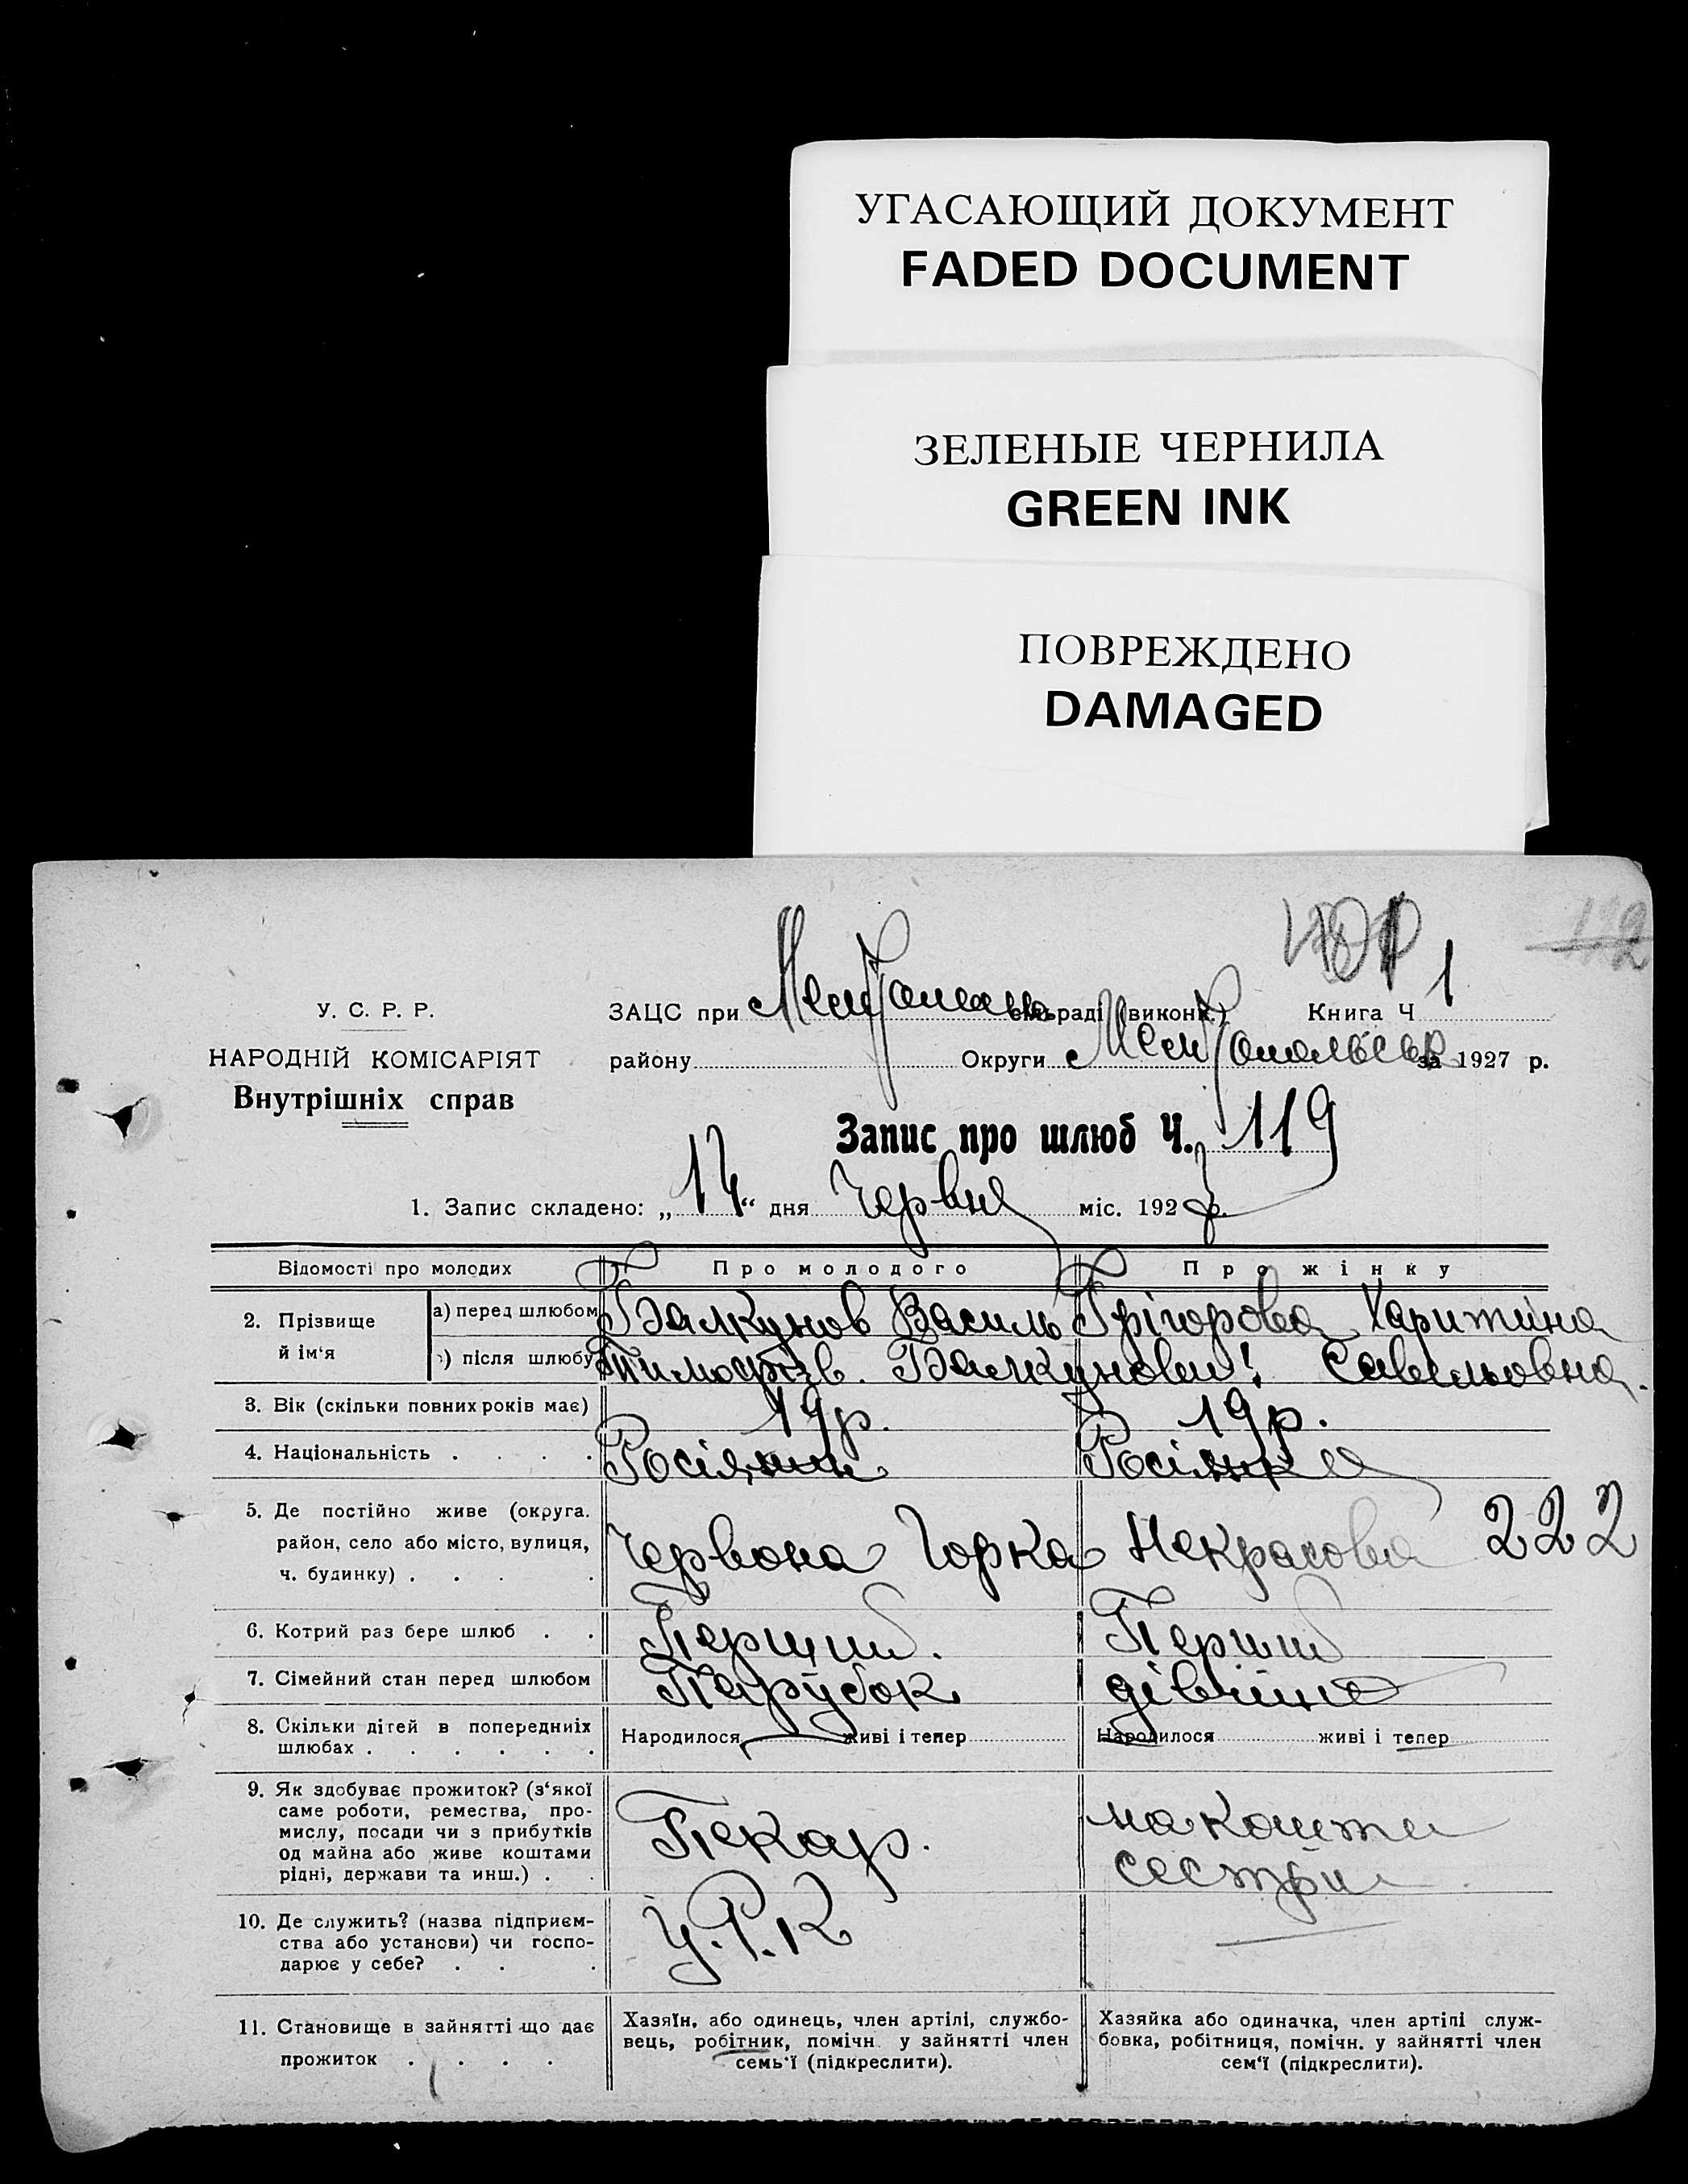 УГАСАЮЩИЙ ДОКУМЕНТ
FADED DOCUMENT
ЗЕЛЕНЫЕ ЧЕРНИЛА
GREEN INK
ПОВРЕЖДЕНО
DAMAGED
У. С. Р. Р.
НАРОДНІЙ КОМІСАРІЯТ
Внутрішніх справ
ЗАЦС при сільраді (виконк.) Книга Ч 1
району Округи за 1927 р.
Запис про шлюб Ч. 119
1. Запис складено: „ “ дня Червня міс. 1927 р.
Відомості про молодих Про молодого Про жінку
2. Прізвище й ім‘я
а) перед шлюбом Балкунов Василь Грігорова Харитина
б) після шлюбу Тимофіїв. Балкунови! Савельовна.
3. Вік (скільки повних років має) 19 р. 19 р.
4. Національність . . . . Росіянин Росіянка
5. Де постійно живе (округа. район, село або місто, вулиця, ч. будинку) . . . . Червона Горка Некрасова 222
6. Котрий раз бере шлюб . . Перший. Перший
7. Сімейний стан перед шлюбом Парубок дівчина
8. Скільки дітей в попередніх шлюбах . . . . . . Народилося живі і тепер Народилося живі і тепер
9. Як здобуває прожиток? (з‘якої саме роботи, ремества, промислу, посади чи з прибутків од майна або живе коштами рідні, держави та инш.) . . Пекар. на кошти сестри
10. Де служить? (назва підприємства або установи) чи господарює у себе? . . . У.Р.К
11. Становище в зайнятті що дає прожиток . . . .
Хазяїн, або одинець, член артілі, службовець, робітник, помічн. у зайнятті член семь‘ї (підкреслити).
Хазяйка або одиначка, член артілі службовка, робітниця, помічн. у зайнятті член сем‘ї (підкреслити).